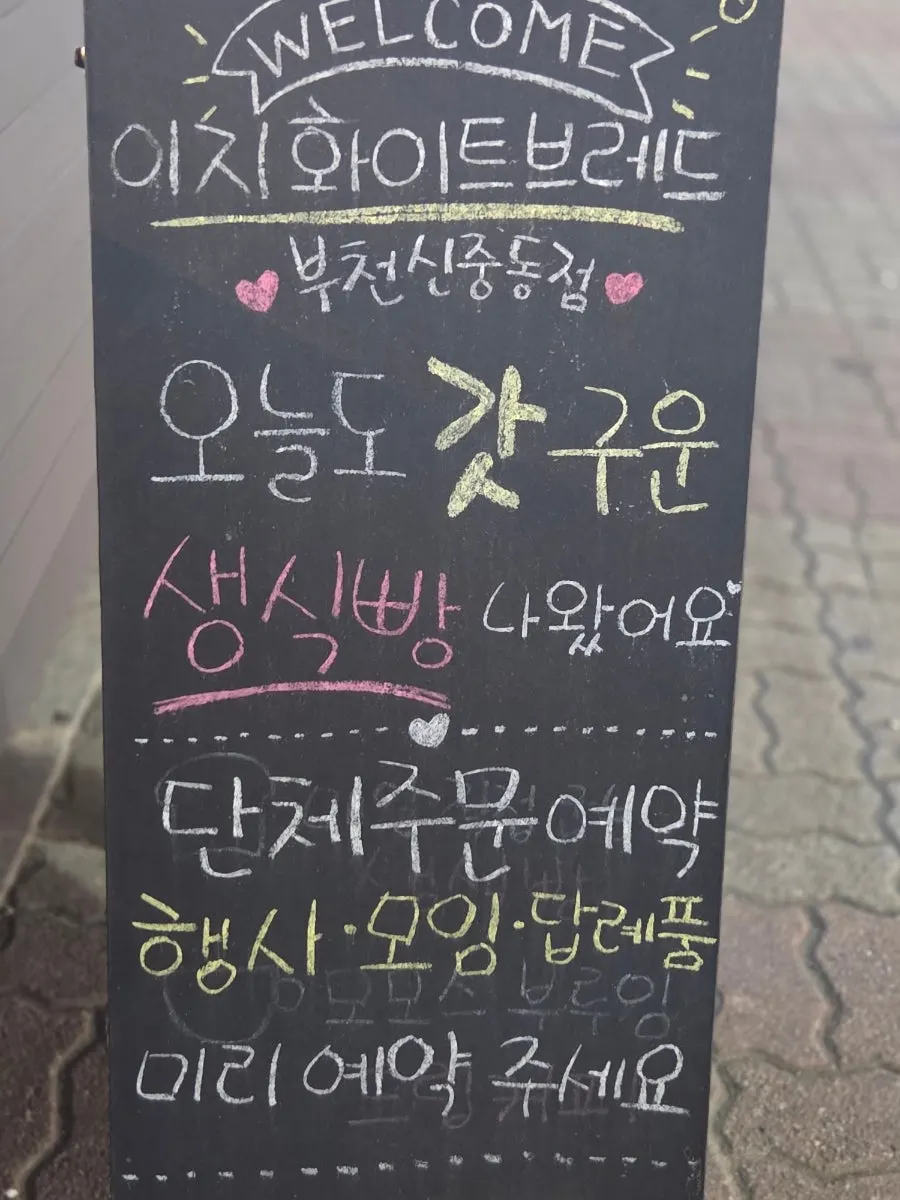 WELCOME
이지화이트브레드
부천신중동점
오늘도 갓 구운
생식빵 나왔어요
단체주문예약
행사·모임·답례품
미리 예약 주세요